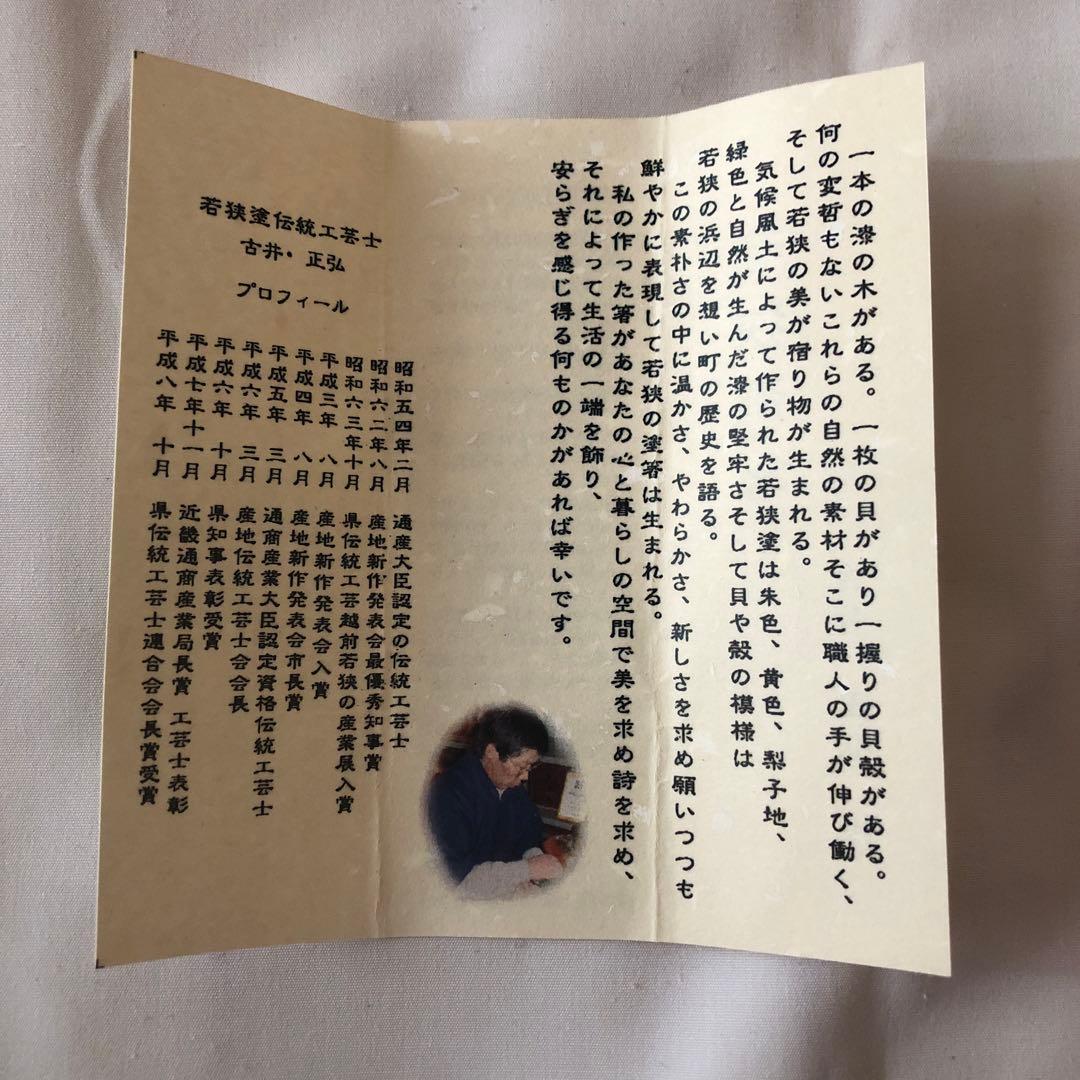 一本の漆の木がある。一枚の貝があり一握りの貝殻がある。
何の変哲もないこれらの自然の素材そこに職人の手が伸び働く、
そして若狭の美が宿り物が生まれる。
気候風土によって作られた若狭塗は朱色、黄色、梨子地、
緑色と自然が生んだ漆の堅牢さそして貝や殻の模様は
若狭の浜辺を想い町の歴史を語る。
この素朴さの中に温かさ、やわらかさ、新しさを求め願いつつも
鮮やかに表現して若狭の塗箸は生まれる。
私の作った箸があなたの心と暮らしの空間で美を求め詩を求め、
それによって生活の一端を飾り、
安らぎを感じ得る何ものかがあれば幸いです。
若狭塗伝統工芸士
古井・正弘
プロフィール
昭和五四年二月 通産大臣認定の伝統工芸士
昭和六二年八月 産地新作発表会最優秀知事賞
昭和六三年十月 県伝統工芸越前若狭の産業展入賞
平成三年 八月 産地新作発表会入賞
平成四年 八月 産地新作発表会市長賞
平成五年 三月 通商産業大臣認定資格伝統工芸士
平成六年 三月 産地伝統工芸士会会長
平成六年 十月 県知事表彰受賞
平成七年十一月 近畿通商産業局長賞 工芸士表彰
平成八年 十月 県伝統工芸士連合会会長賞受賞